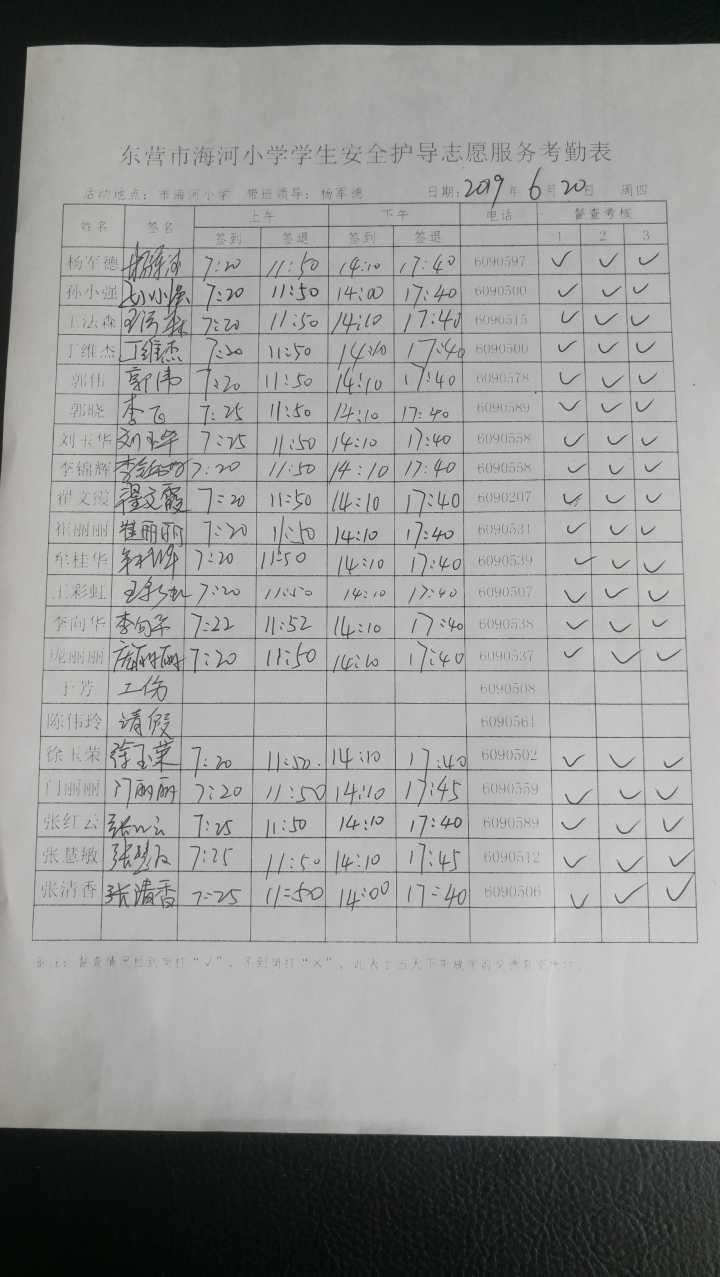 东营市海河小学学生安全护导志愿服务考勤表
活动地点：市海河小学 带班领导：杨军德 日期：2019年6月20日 周四
姓名 签名 上午 下午 电话 督查考核
签到 签退 签到 签退 1 2 3
杨军德 7:20 11:50 14:10 17:40 6090597 ✓ ✓ ✓
孙小强 孙小强 7:20 11:50 14:00 17:40 6090500 ✓ ✓ ✓
王法森 王法森 7:20 11:50 14:10 17:40 6090515 ✓ ✓ ✓
丁维杰 丁维杰 7:20 11:50 14:10 17:40 6090500 ✓ ✓ ✓
郭伟 郭伟 7:20 11:50 14:10 17:40 6090578 ✓ ✓ ✓
郭晓 李飞 7:25 11:50 14:10 17:40 6090589 ✓ ✓ ✓
刘玉华 刘玉华 7:25 11:50 14:10 17:40 6090558 ✓ ✓ ✓
李锦辉 7:20 11:50 14:10 17:40 6090558 ✓ ✓ ✓
翟文霞 翟文霞 7:20 11:50 14:10 17:40 6090207 ✓ ✓ ✓
崔丽丽 崔丽丽 7:20 11:50 14:10 17:40 6090531 ✓ ✓ ✓
牟桂华 7:20 11:50 14:10 17:40 6090539 ✓ ✓ ✓
王彩虹 王彩虹 7:20 11:50 14:10 17:40 6090507 ✓ ✓ ✓
李向华 李向华 7:22 11:52 14:10 17:40 6090538 ✓ ✓ ✓
庞丽丽 庞丽丽 7:20 11:50 14:10 17:40 6090537 ✓ ✓ ✓
于芳 工伤 6090508
陈伟玲 请假 6090561
徐玉荣 徐玉荣 7:20 11:50 14:10 17:40 6090502 ✓ ✓ ✓
门丽丽 门丽丽 7:20 11:50 14:10 17:45 6090559 ✓ ✓ ✓
张红云 张红云 7:25 11:50 14:10 17:40 6090589 ✓ ✓ ✓
张慧敏 张慧敏 7:25 11:50 14:10 17:45 6090512 ✓ ✓ ✓
张清香 张清香 7:25 11:50 14:00 17:40 6090506 ✓ ✓ ✓
督查情况 “√”， “×”，